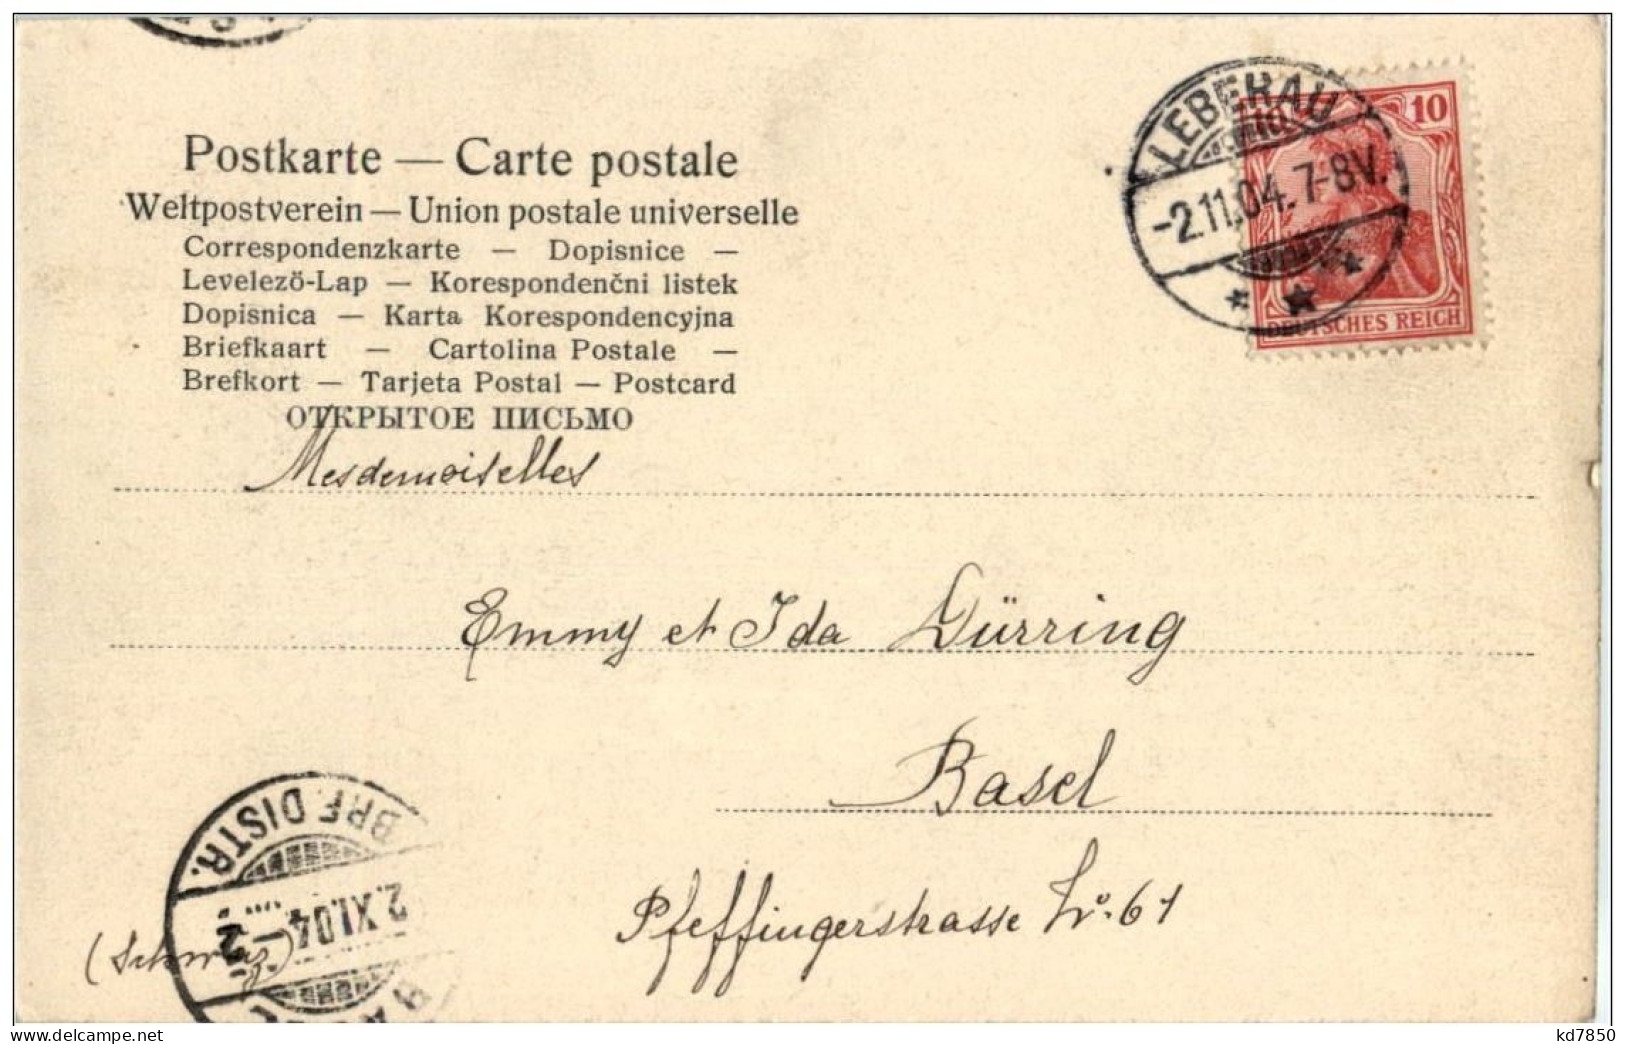 Postkarte — Carte postale
Weltpostverein — Union postale universelle
Correspondenzkarte — Dopisnice —
Levelezö-Lap — Korespondenčni listek
Dopisnica — Karta Korespondencyjna
Briefkaart — Cartolina Postale —
Brefkort — Tarjeta Postal — Postcard
ОТКРЫТОЕ ПИСЬМО
LEBERAU
-2.11.04. 7-8V.
10
DEUTSCHES REICH
Mesdemoiselles
Emmy et Ida Dürring
Basel
Pfeffingerstrasse No. 61
(Schweiz)
BRF. DISTR.
2.XI.04
kd7850